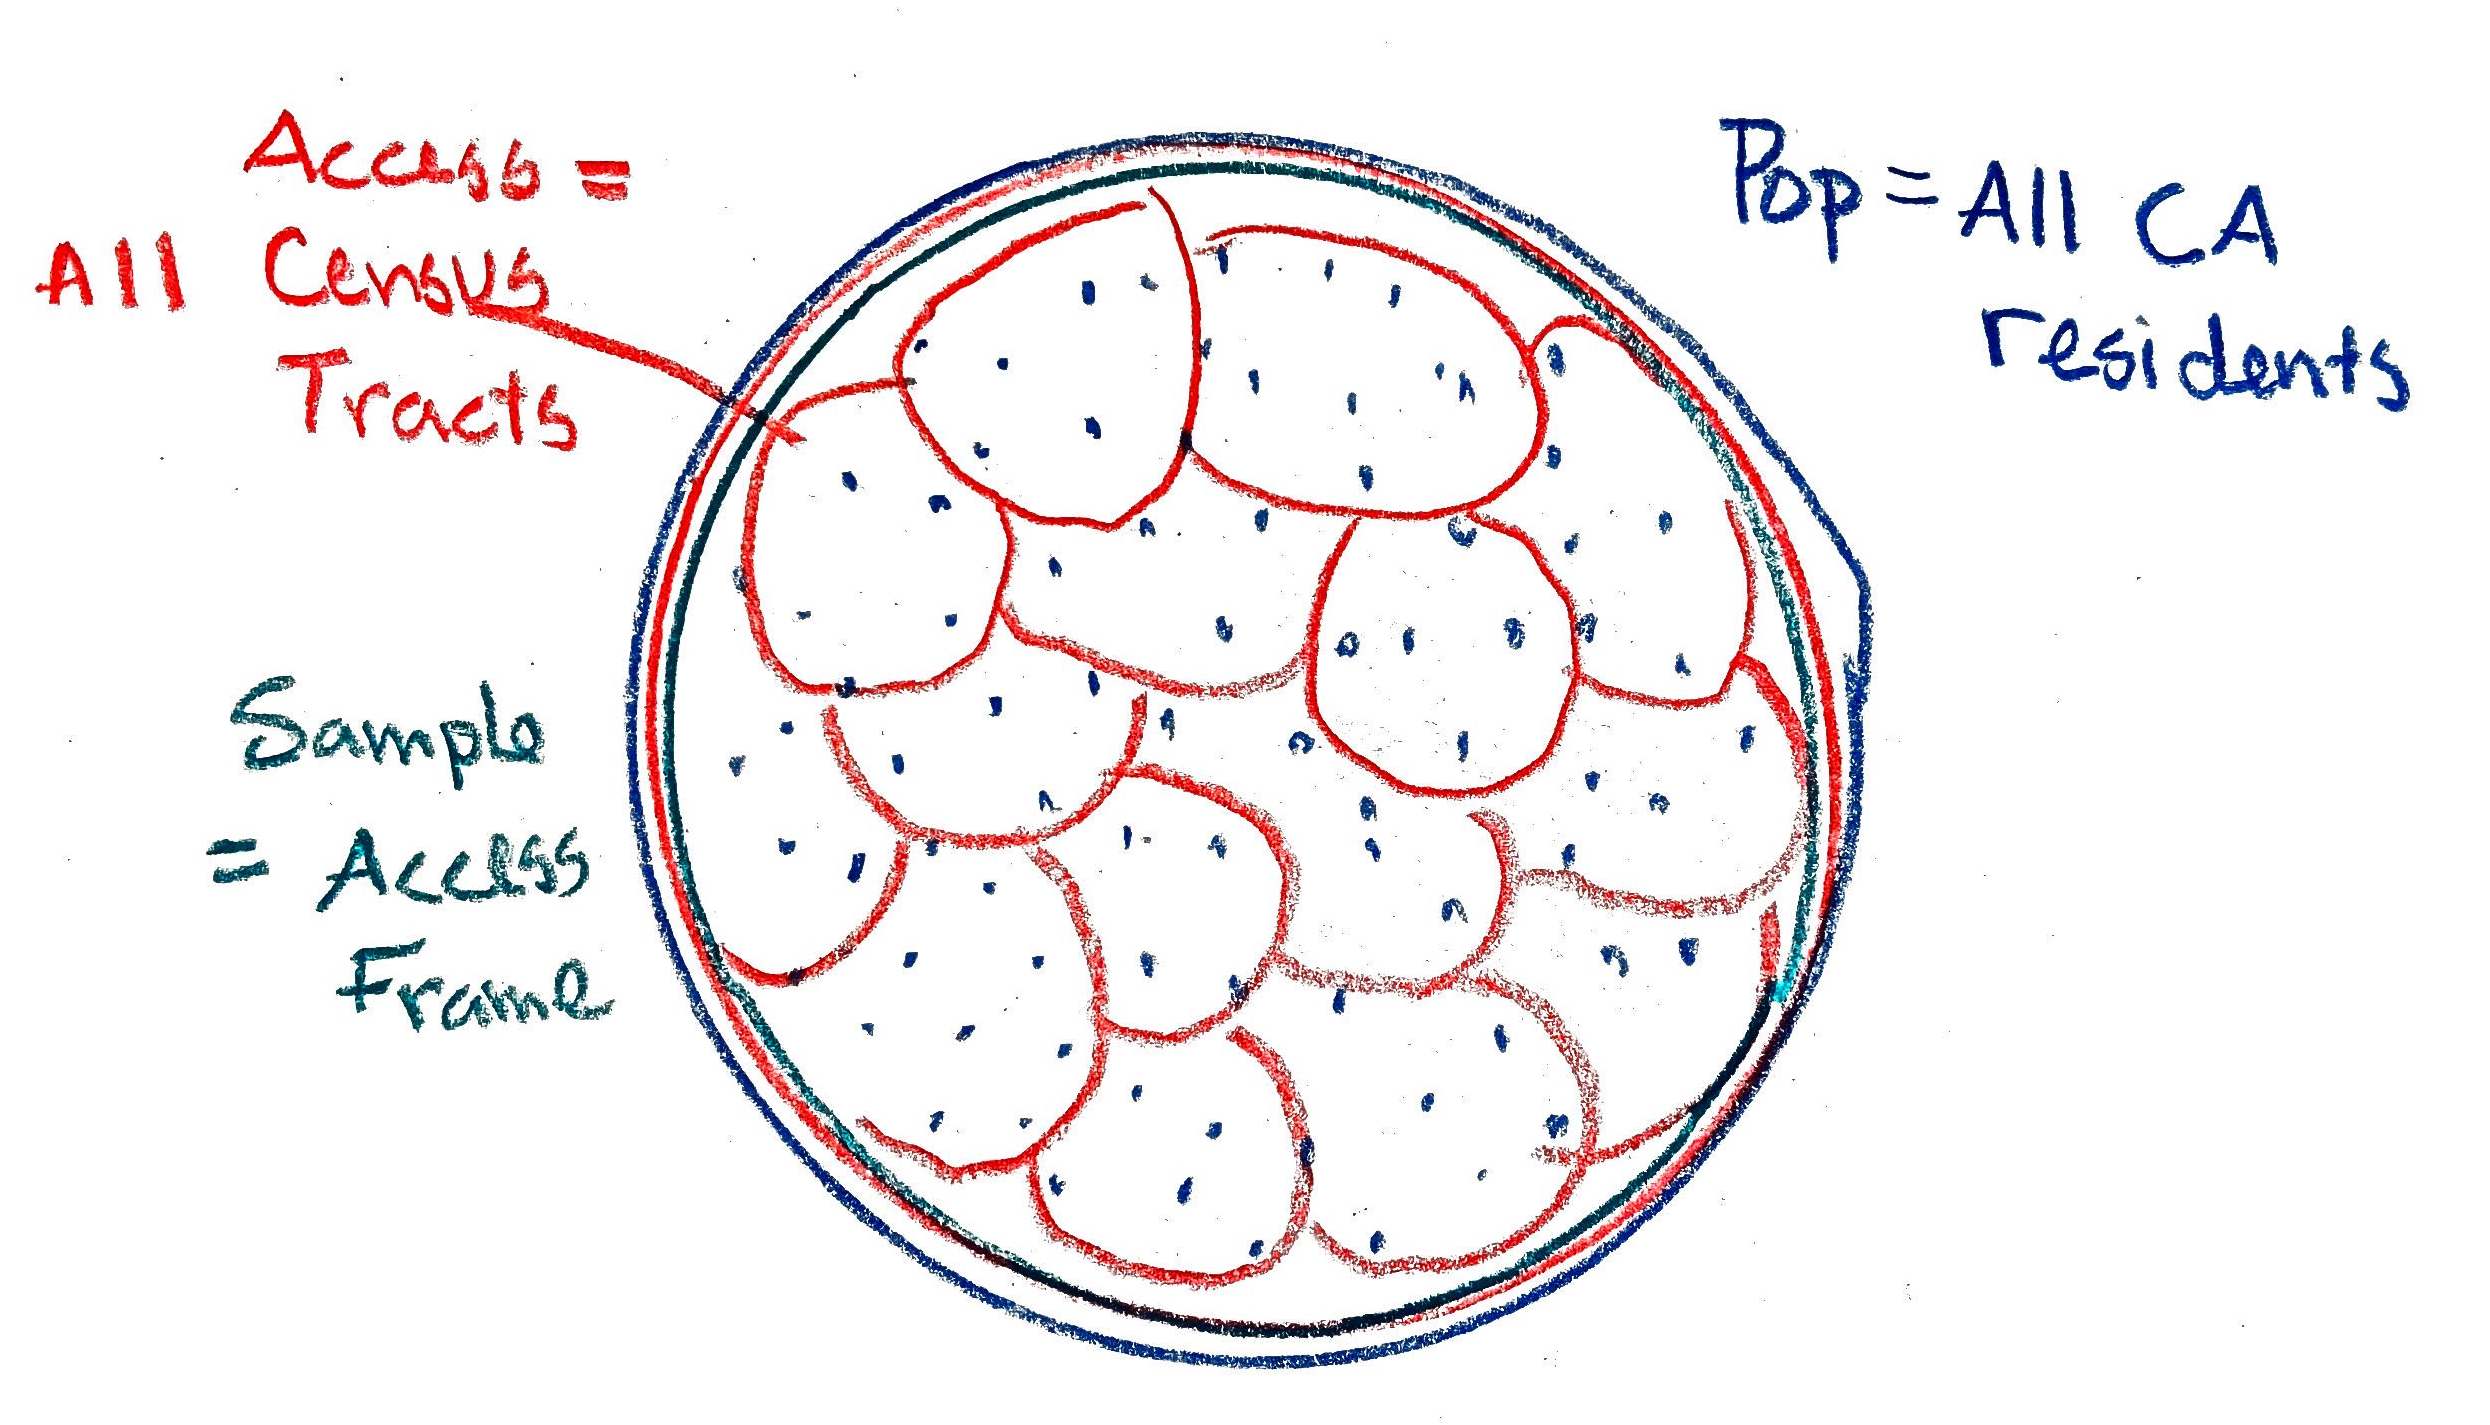 Access =
All Census
Tracts
Pop = All CA
residents
Sample
= Access
Frame